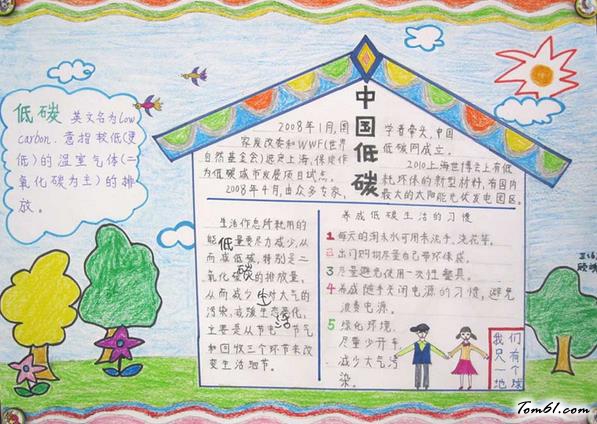 低碳 英文名为low
carbon. 意指较低(更
低)的温室气体(二
氧化碳为主)的排
放。
中国低碳
2008年1月,国
家发改委和WWF(世界
自然基金会)选定上海,保定作
为低碳城市发展项目试点。
2008年4月,由众多专家、
学者牵头,中国
低碳网成立。
2010上海世博会上有低
耗环保的新型材料,有国内
最大的太阳能光伏发电园区。
低碳生活
生活作息所耗用的
能量要尽力减少,从
而减低碳,特别是二
氧化碳的排放量,
从而减少对大气的
污染,减缓生态恶化,
主要是从节电 节气
和回收三个环节来改
变生活细节。
养成低碳生活的习惯
1 每天的淘米水可用来洗手、浇花等。
2 出门购物尽量自己带环保袋。
3 尽量避免使用一次性餐具。
4 养成随手关闭电源的习惯,避免
浪费电源。
5 绿化环境.
尽量少开车
减少大气污
染。
我们
只有
一个
地球
Tom61.com